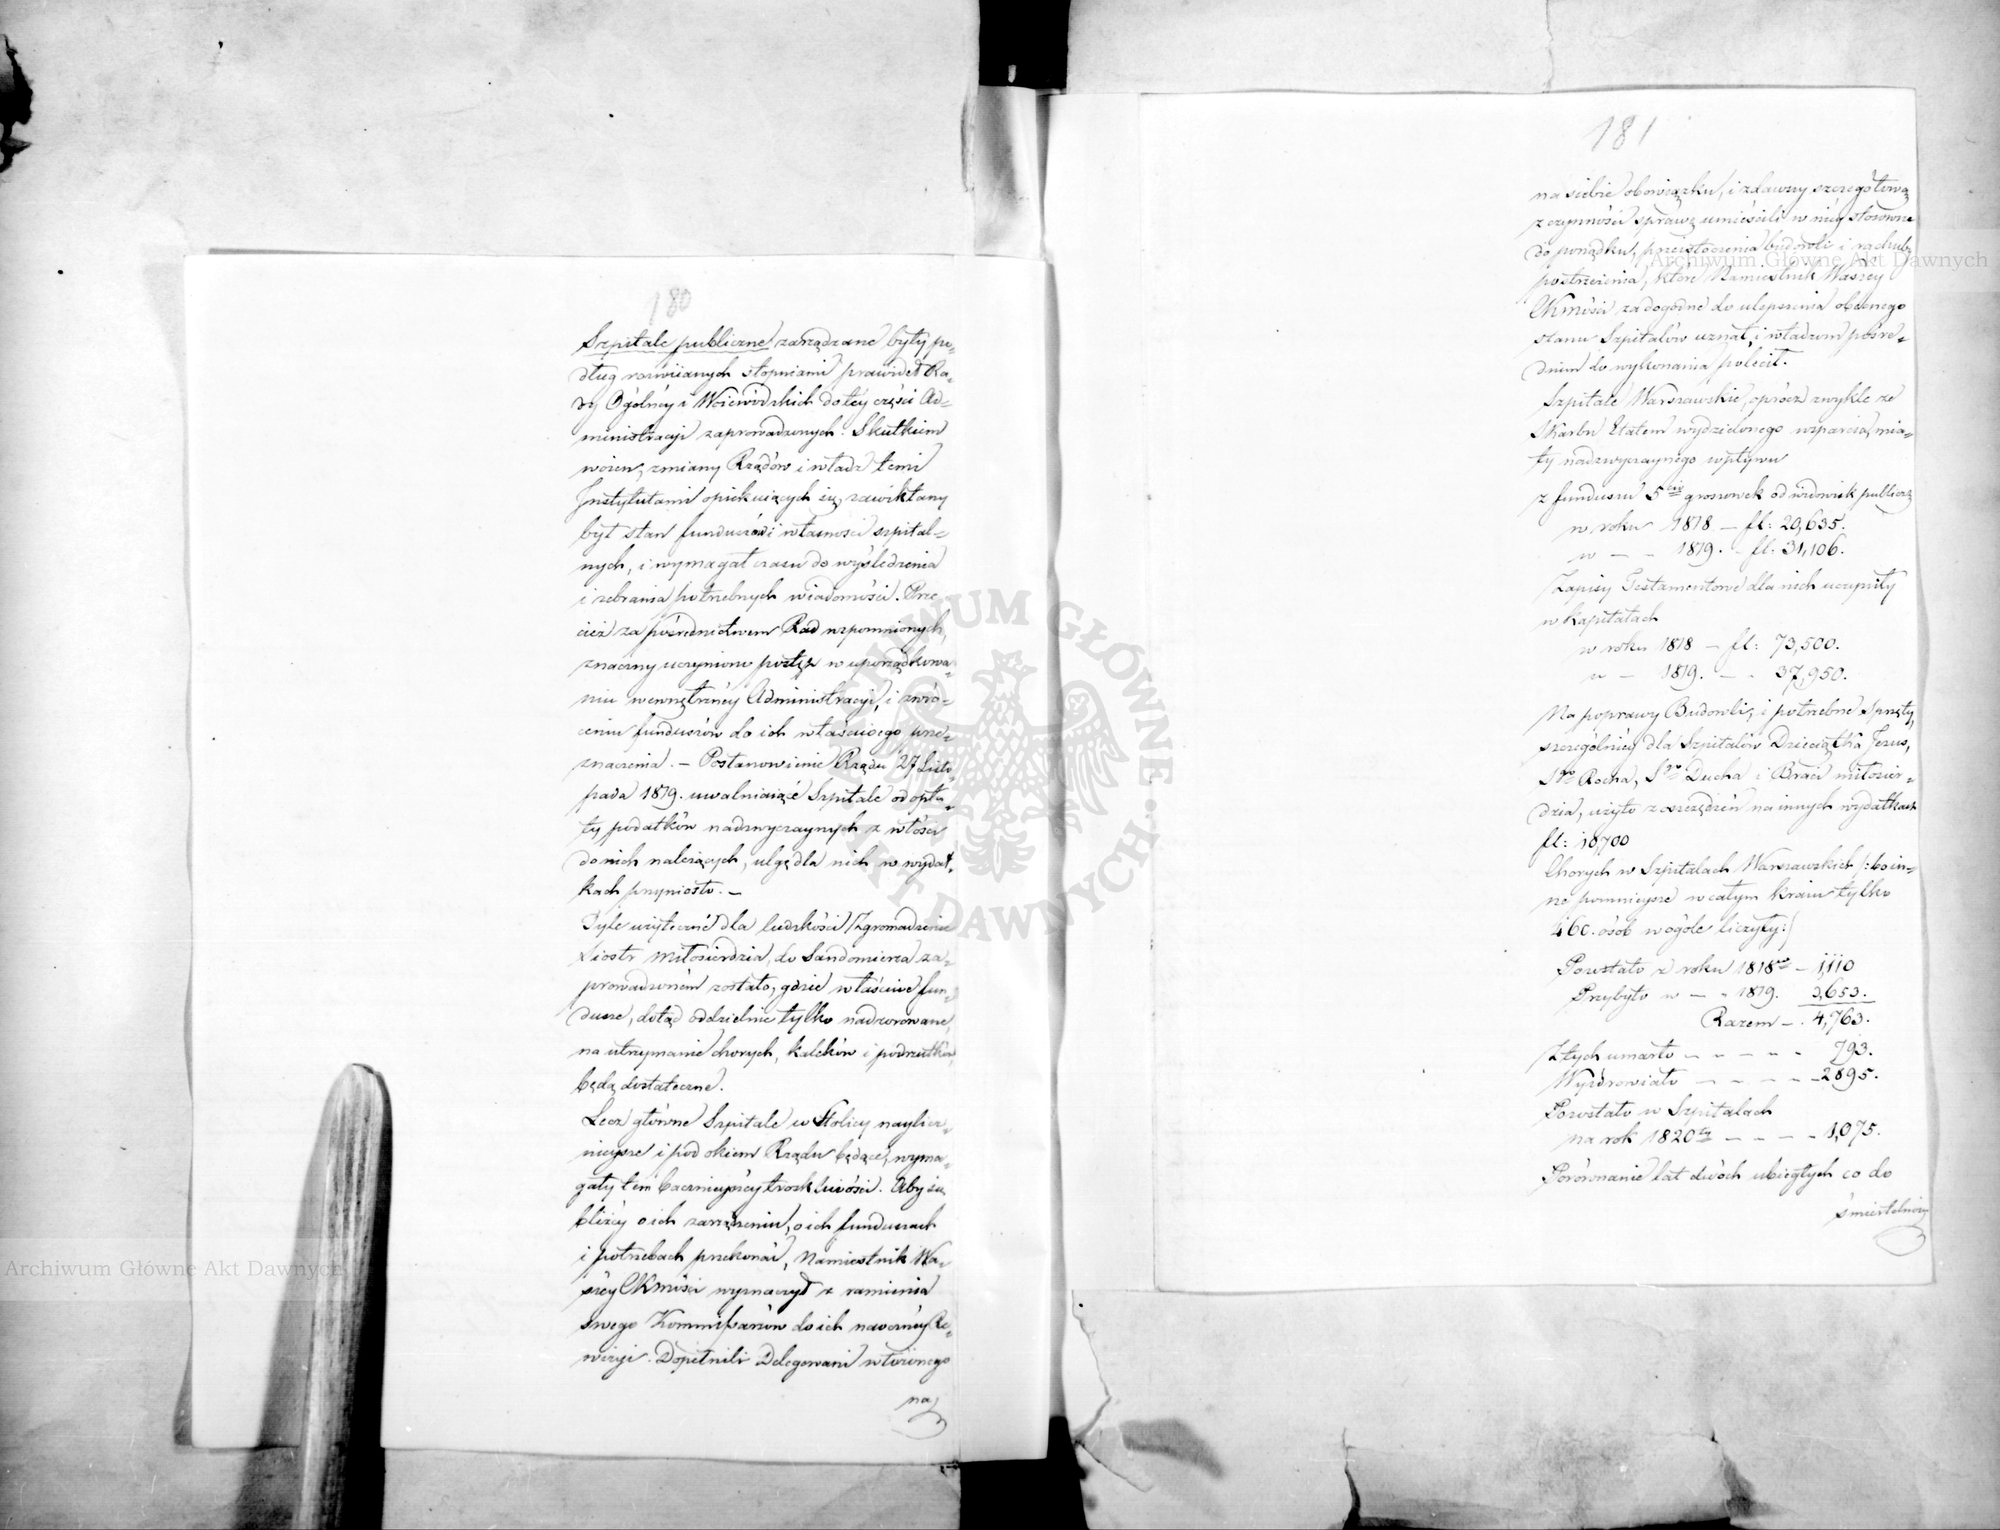 180
Szpitale publiczne zarządzane były po=
dług rozwiianych stopniami prawideł Ra=
dy Ogólnéy i Woiewódzkich do téy części Ad=
ministracyi zaprowadzonych. Skutkiem
woien, zmiany Rządów i władz temi
Instytutami opiekuiących się, zawikłany
był stan funduszów i własności szpital=
nych, i wymagał czasu do wyśledzenia
i zebrania potrzebnych wiadomości. Prze
cież za pośrednictwem Rad wspomnionych,
znaczny uczyniono postęp w uporządkowa=
niu wewnętrznéy Administracyi, i zwró=
ceniu funduszów do ich właściwego prze=
znaczenia. — Postanowienie Rządu 27 Listo=
pada 1819. uwalniaiące Szpitale od opła=
ty podatków nadzwyczaynych z włości
do nich należących, ulgę dla nich w wydat=
kach przyniosło. —
Tyle użyteczne dla ludzkości Zgromadzenie
Siostr miłosierdzia, do Sandomierza za=
prowadzoném zostało, gdzie właściwe fun=
dusze, dotąd oddzielnie tylko nadzorowane,
na utrzymanie chorych, kalików i podrzutków
będą dostateczne.
Lecz główne Szpitale w Stolicy naylicz=
nieysze i pod okiem Rządu będące, wyma=
gały tém bacznieyszéy troskliwości. Aby się
bliżéy o ich zarządzeniu, o ich funduszach
i potrzebach przekonać, Namiestnik Wa=
széy CKMości wyznaczył z ramienia
swego Kommissarzów do ich naoczney Re=
wizyi. Dopełnili Delegowani włożonego
na
181
na siebie obowiązku, i zdawszy szczegółową
z czynności sprawę umieścili w niéy stosowne
do porządku, przeistoczenia budowli i rachuby
postrzeżenia, które Namiestnik Waszey
CKMości za dogodne do ulepszenia obecnego
stanu Szpitalów uznał, i władzom pośre=
dnim do wykonania polecił.
Szpitale Warszawskie, oprócz zwykle ze
Skarbu Etatem wydzielonego wsparcia, mia=
ły nadzwyczaynego wpływu
z funduszu 5cio groszówek od widowisk publicz
w roku 1818 — fl: 29,635.
w — - 1819. - fl: 31,106.
Zapisy Testamentowe dla nich uczyniły
w kapitałach
w roku 1818 — fl: 73,500.
w — 1819. — - 37,950.
Na poprawy Budowli, i potrzebne Sprzęty,
szczególniéy dla Szpitalów Dzieciątka Jezus,
Sgo Rocha, Sgo Ducha i Braci miłosier=
dzia, użyto z oszczędzeń na innych wydatkach
fl: 18700
Chorych w Szpitalach Warszawskich /: bo in=
ne pomnieysze w całym kraiu tylko
460. osób w ogóle liczyły :/
Pozostało z roku 1818go — 1,110
Przybyło w — - 1819. 3,653.
Razem — . 4,763.
Z tych umarło — - - - - 793.
Wyzdrowiało — - - - - 2895.
Pozostało w Szpitalach
na rok 1820ty — - - - 1,075.
Porównanie lat dwóch ubiegłych co do
śmiertelności
Archiwum Główne Akt Dawnych
Archiwum Główne Akt Dawnych
ARCHIWUM GŁÓWNE AKT DAWNYCH